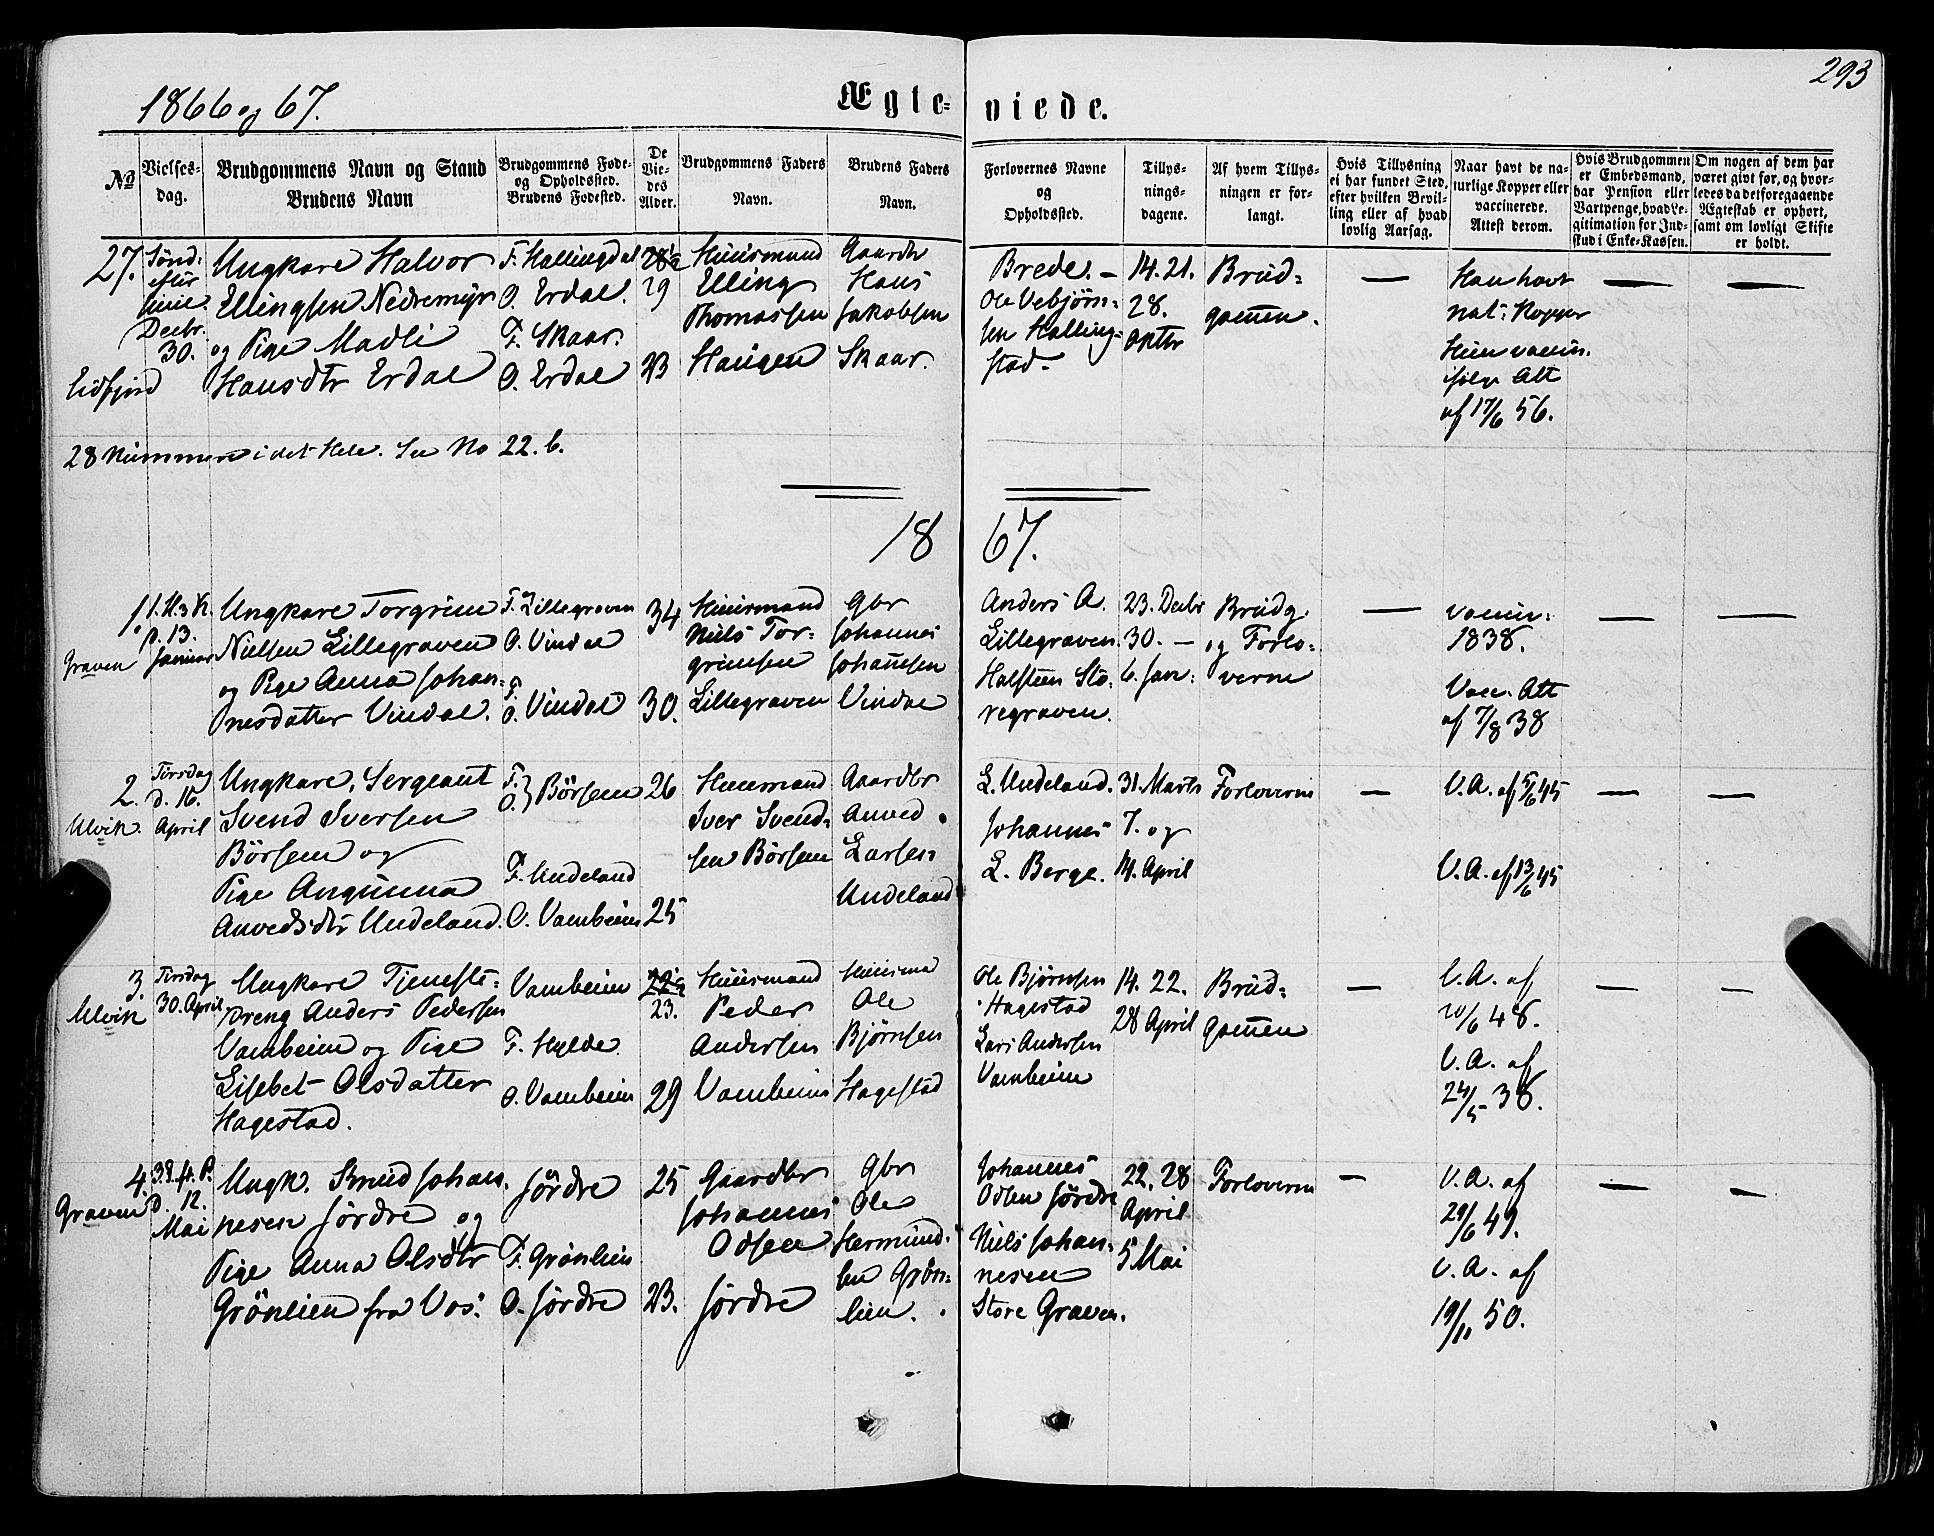 293
1866 og 67.
Ægte= viede.
No
Vielses-
dag.
Brudgommens Navn og Stand
Brudens Navn
Brudgommens Føde-
og Opholdssted.
Brudens Fødested.
De
Vie-
des
Alder.
Brudgommens Faders
Navn.
Brudens Faders
Navn.
Forlovernes Navne
og
Opholdssted.
Tillys-
nings-
dagene.
Af hvem Tillys-
ningen er for-
langt.
Hvis Tillysning
ei har fundet Sted,
efter hvilken Bevil-
ling eller af hvad
lovlig Aarsag.
Naar havt de na-
turlige Kopper eller
vaccinerede.
Attest derom.
Hvis Brudgommen
er Embedsmand,
har Pension eller
Vartpenge, hvad Le-
gitimation for Ind-
skud i Enke-Kassen.
Om nogen af dem har
været givt før, og hvor-
ledes da det foregaaende
Ægteskab er ophørt,
samt om lovligt Skifte
er holdt.
27.
Sønd:
efter
Juul
Decbr.
30.
Eidfjord
Ungkare Halvor
Ellingsen Nedremyr
og Pige Madli
Hansdtr Erdal
F. Hallingdal
O. Erdal.
F. Skaar.
O. Erdal
29
23
Huusmand
Elling
Thomassen
Haugen
Gaardbr
Hans
Jakobsen
Skaar.
Brede. –
Ole Vebjørn=
sen Halling=
stad.
14. 21.
28.
Brud=
gommen.
Han havt
nat: Kopper
Hun vaccin.
ifølge Att
af 17/6 56.
28 Nummere i det Hele. Se No 22.b.
1867.
1.
Graven
1. S. e. H. 3 K.
d. 13.
Januar
Ungkare Torgrim
Nielsen Lillegraven
og Pige Anna Johan=
nesdatter Vindal.
F. Lillegraven
O. Vindal
F.
O. Vindal
34
30.
Huusmand
Niels Tor=
grimsen
Lillegraven
Gbr
Johannes
Johannesen
Vindal
Anders A.
Lillegraven.
Halsteen Sto=
regraven.
23. Decbr
30. –
6. Jan:
Brudg.
og Forlo=
verne
vaccin:
1838.
Vacc. Att
af 7/8 38
2.
Ulvik.
Tirsdag
d. 16.
April
Ungkare, Sergeant
Svend Iversen
Børsem og
Pige Angunna
Anvedsdtr Undeland.
F.
O. } Børsem
F. Undeland
O. Vambeim
26
25
Huusmand
Iver Svend=
sen Børsem
Gaardbr
Anved
Larsen
Undeland
L. Undeland.
Johannes
L. Berge.
31. Marts
7. og
14. April
Forloverne
V. A. af 5/6 45
V. A. af 13/6 45
3.
Ulvik
Tirsdag
30. April
Ungkare Tjeneste=
dreng Anders Pedersen
Vambeim og Pige
Lisebet Olsdatter
Hagestad.
Vambeim
F. Hylde.
O. Vambeim
23.
29
Huusmand
Peder
Andersen
Vambeim
Huusmd
Ole
Bjørnsen
Hagestad
Ole Bjørnsen
Hagestad
Lars Andersen
Vambeim
14. 22.
28 April
Brud=
gommen
V. A. af
20/6 48.
V. A. af
24/5 38.
4.
Graven
3. S. f. P.
D. 12.
Mai
Ungk. Knud Johan=
nesen Jørdre og
Pige Anna Olsdtr
Grönlien fra Vos.
Jørdre
F. Grönlien
O. Jørdre
25
23.
Gaardbr
Johannes
Odsen
Jørdre
Gbr
Ole
Hermund=
sen Grön=
lien.
Johannes
Odsen Jørdre
Niels Johan=
nesen
Store Graven.
22. 28
April
5 Mai
Forloverne
V. A. af
29/6 49.
V. A. af
19/11 50.